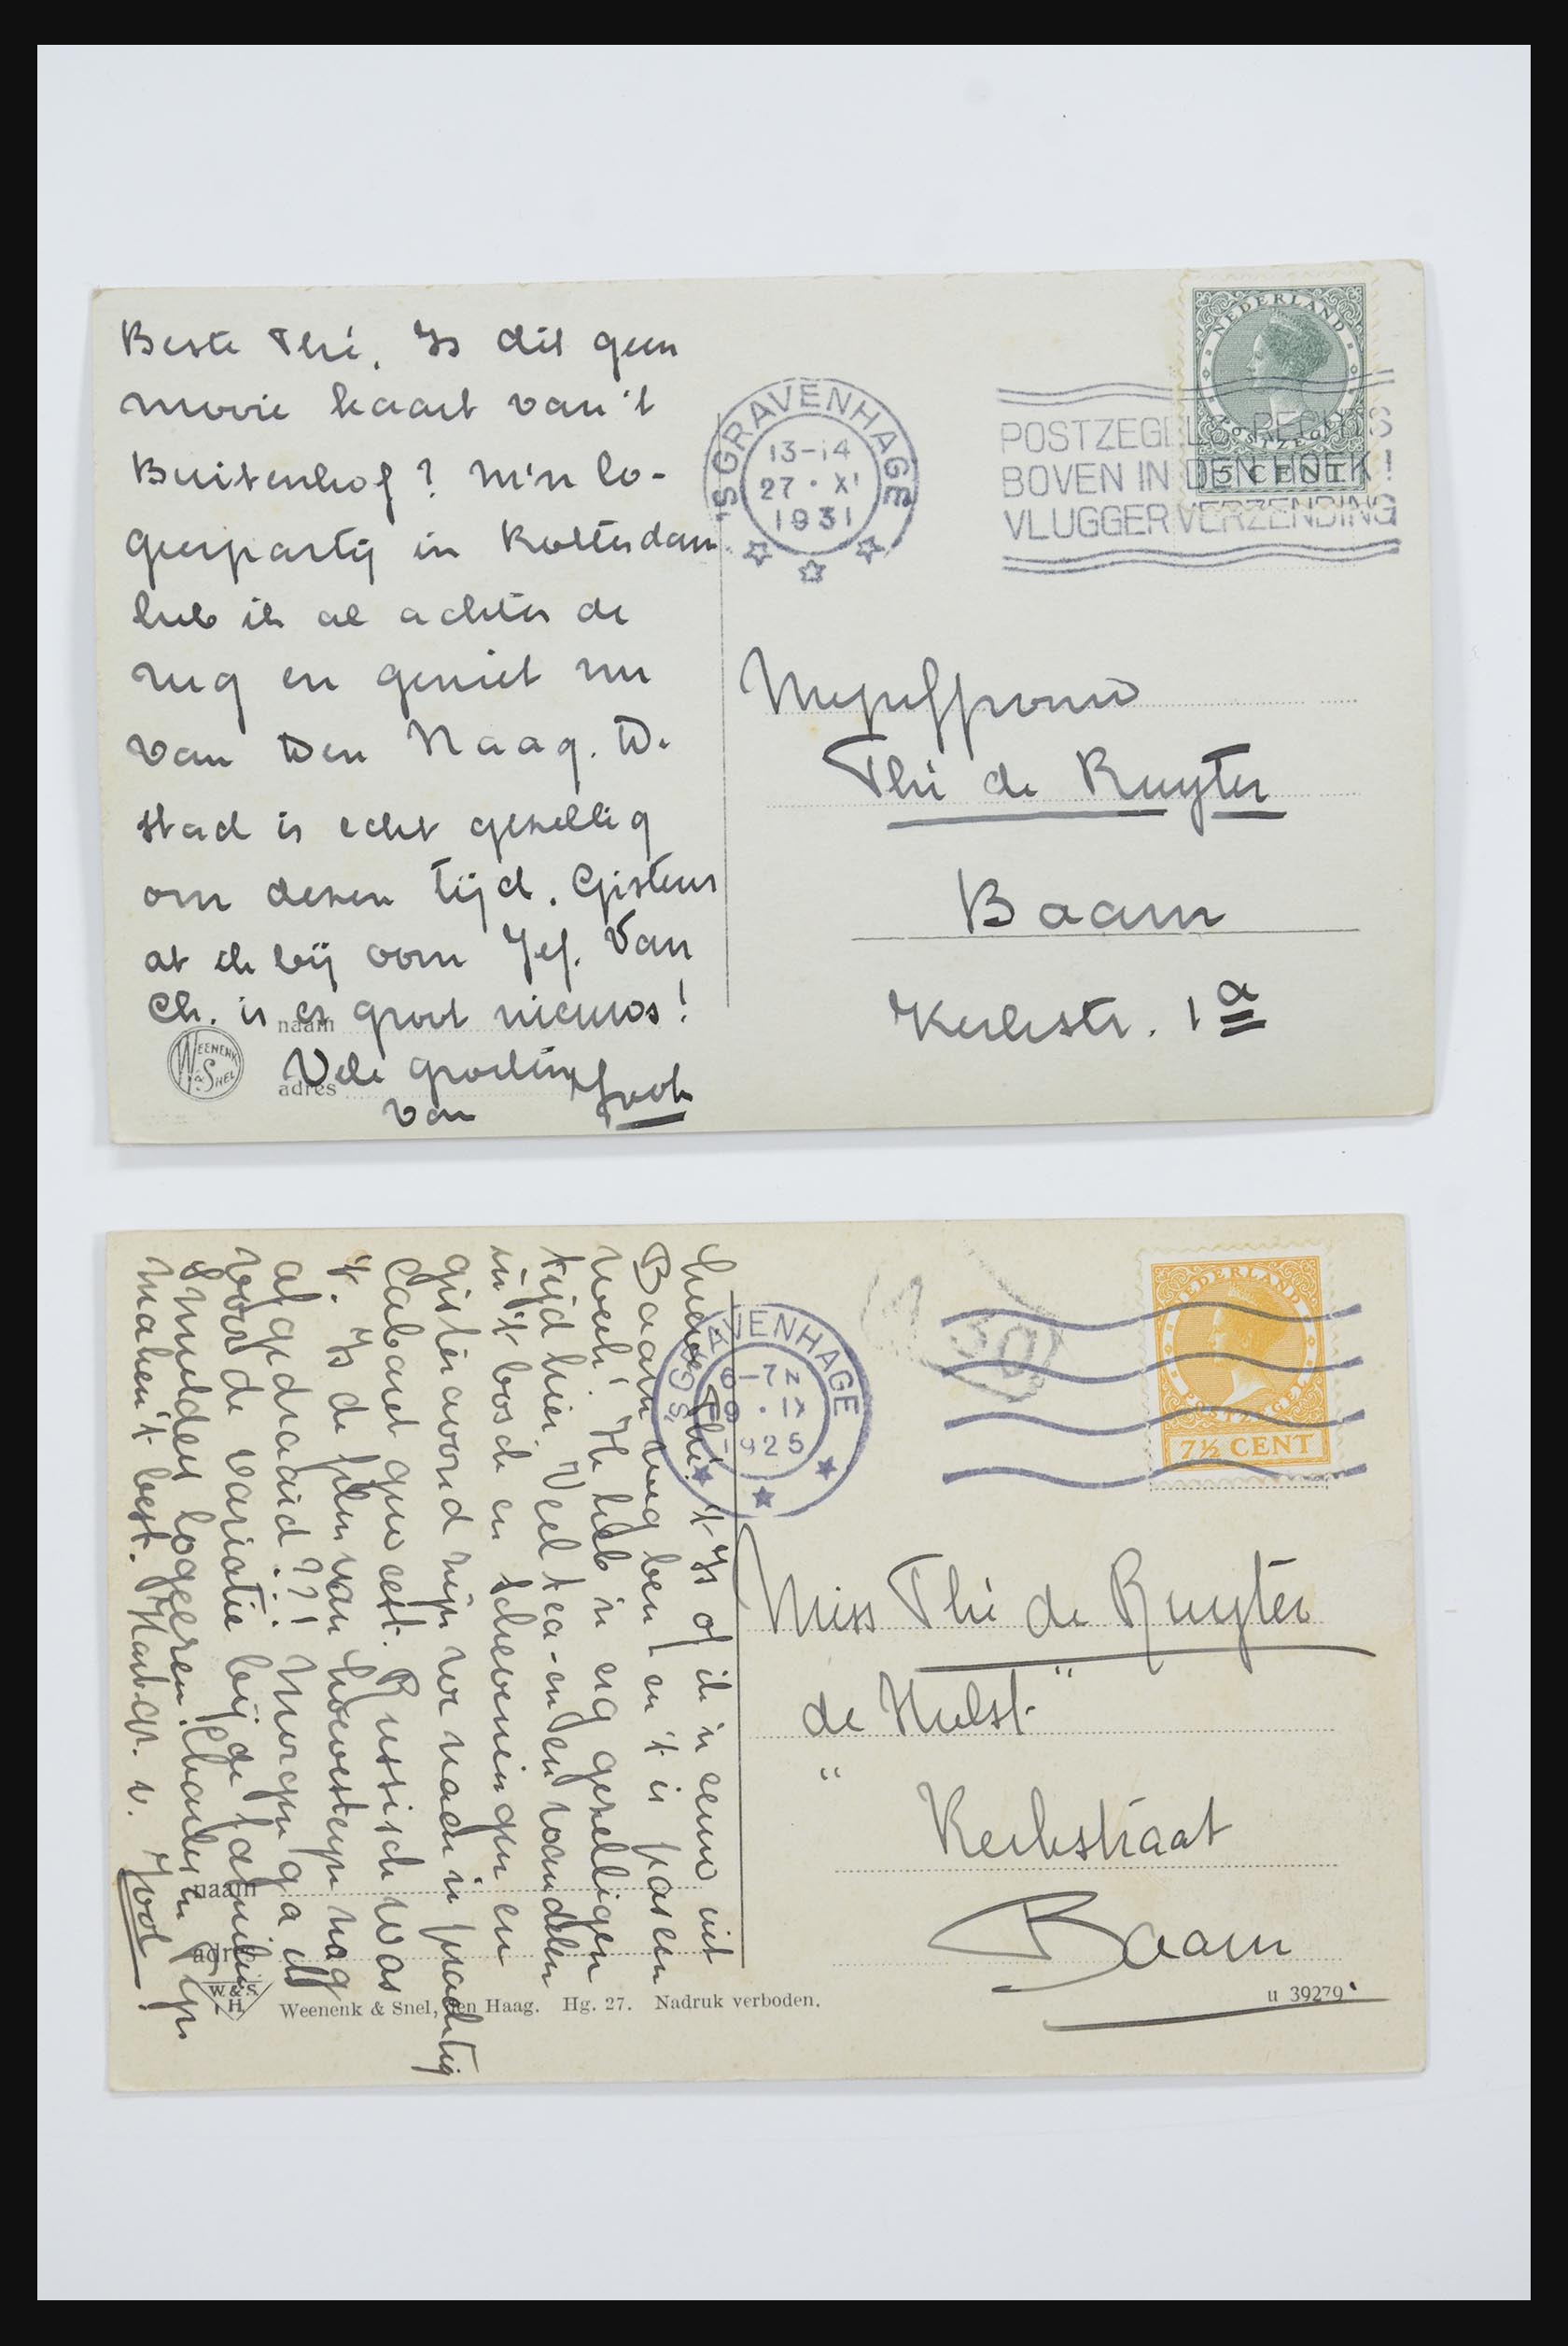 Beste Thé, Is dit geen
mooie kaart van 't
Buitenhof? M'n lo-
geerpartij in Rotterdam
heb ik al achter de
rug en geniet nu
van Den Haag. De
stad is echt gezellig
om dezen tijd. Gisteren
at ik bij oom Jef. Van
Ch. is er groot nieuws!
Vele groeten
van Joob
naam
adres
WEENENK & SNEL
'S GRAVENHAGE
13-14
27 · XI
1931
POSTZEGELS RECHTS
BOVEN IN DEN HOEK!
VLUGGER VERZENDING
NEDERLAND
POSTZEGEL
5 CENT
Mejuffrouw
Thé de Ruyter
Baarn
Kerkstr. 1a
Lieve Thé. 't Is of ik 'n eeuw uit
Baarn weg ben en 't is pas een
week! Ik heb 'n erg gezelligen
tijd hier. Veel tea-en en wandelen
in 't bosch en Scheveningen en
gisteravond zijn we naar 'n prachtig
Cabaret geweest. Russisch was
't. Is de film van Soevesteyn nog
afgedraaid??! Morgen ga ik
voor de variatie bij de familie
Smulders logeeren. Charles en Jef
maken 't best. Hart. gr. v. Joob
naam
adres
W. & S.
H
Weenenk & Snel, den Haag. Hg. 27. Nadruk verboden.
u 39279
'S GRAVENHAGE
6-7 N
9 · IX
1925
NEDERLAND
POSTZEGEL
7½ CENT
Miss Thé de Ruyter
"de Hulst"
Kerkstraat
Baarn